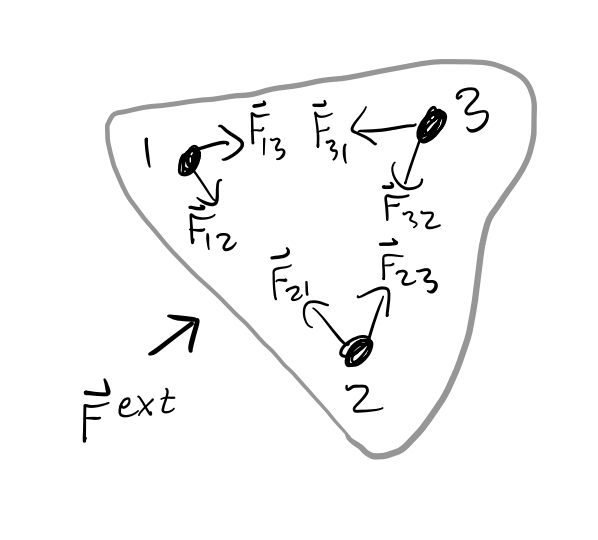 1
F⃗13
F⃗31
3
F⃗12
F⃗32
F⃗21
F⃗23
2
F⃗ext